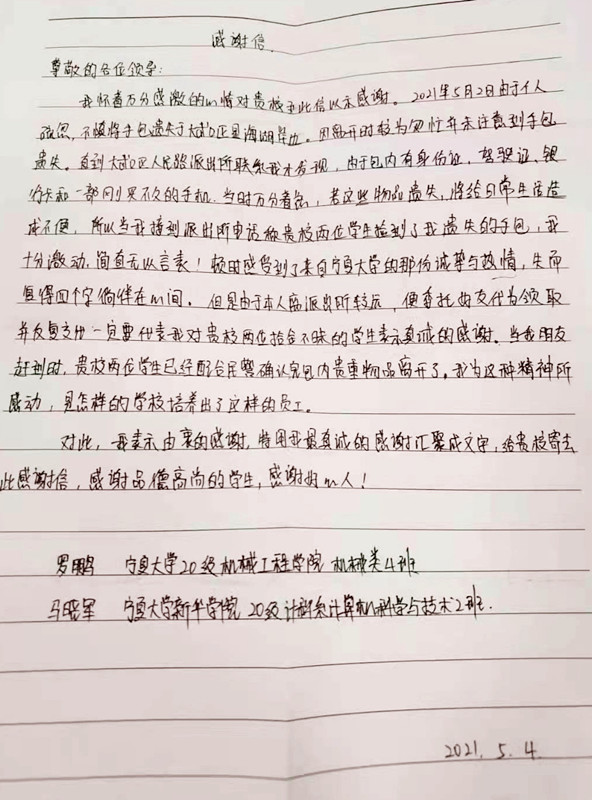 感谢信.
尊敬的各位领导:
我怀着万分感激的心情对贵校至此信以示感谢。2021年5月2日由于个人
疏忽,不慎将手包遗失于大武口区星海湖岸边。因离开时较为匆忙并未注意到手包
遗失。直到大武口区人民路派出所联系我才发现,由于包内有身份证,驾驶证,银
行卡和一部刚买不久的手机.当时万分着急,若这些物品遗失,将给日常生活造
成不便,所以当我接到派出所电话称贵校两位学生捡到了我遗失的手包,我
十分激动,简直无以言表!顿时感受到了来自宁夏大学的那份诚挚与热情,失而
复得四个字徜徉在心间。但是由于本人离派出所较远,便委托好友代为领取
并反复交代一定要代表我对贵校两位拾金不昧的学生表示真诚的感谢。当我朋友
赶到时,贵校两位学生已经配合民警确认完包内贵重物品离开了。我为这种精神所
感动,是怎样的学校培养出了这样的员工。
对此,我表示由衷的感谢,特用我最真诚的感谢汇聚成文字,给贵校寄去
此感谢信,感谢品德高尚的学生,感谢好心人!
罗鹏 宁夏大学20级机械工程学院 机械类4班
马晓军 宁夏大学新华学院 20级计科系计算机科学与技术2班.
2021.5.4.